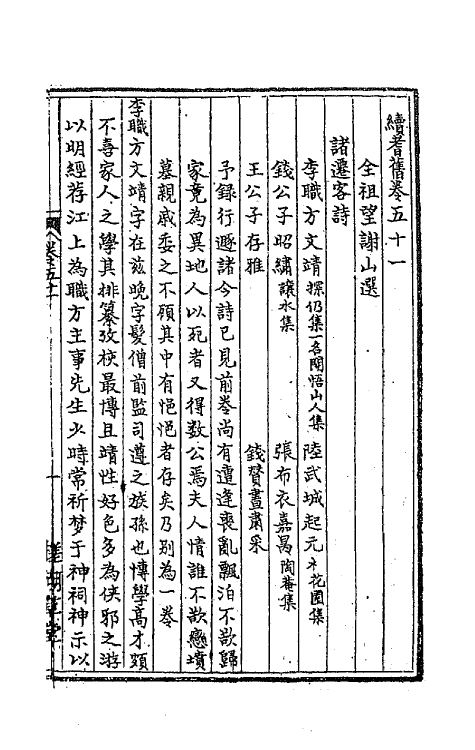 續耆舊卷五十一
全祖望謝山選
諸遷客詩
李職方文靖探仍集一名閒悟山人集　陸武城起元木花園集
錢公子昭繡讓水集　張布衣嘉昺陶菴集
王公子存雅　錢贊畫肅采
予録行遯諸今詩已見前卷尚有遭逢喪亂飄泊不欲歸
家竟為異地人以死者又得数公焉夫人情誰不欲戀墳
墓親戚委之不顧其中有悒悒者存矣乃别為一卷
李職方文靖字在兹晚字髮僧前監司遵之族孫也博學高才頗
不喜家人之學其排纂攷核最博且靖性好色多為俠邪之游
以明經荐江上為職方主事先生少時常祈梦于神祠神示以
卷五十一
一